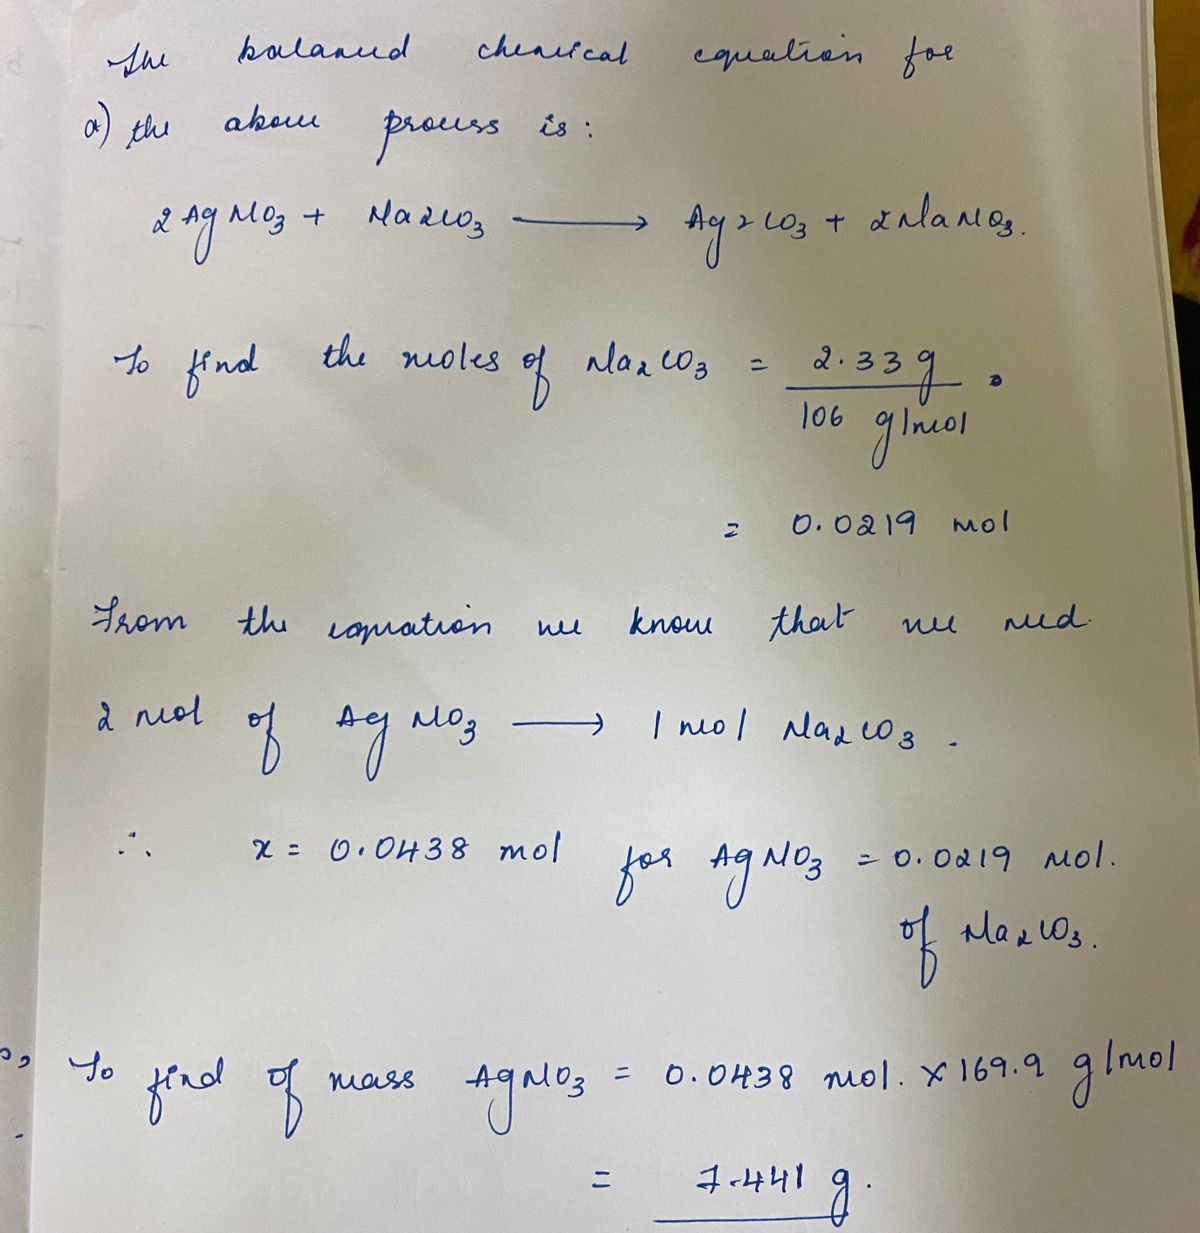 The balanced chemical equation for
a) the above process is:
2 AgNO3 + Na2CO3 ⟶ Ag2CO3 + 2NaNO3.
To find the moles of Na2CO3 = 2.33g
106 g/mol
= 0.0219 mol
From the equation we know that we need
2 mol of AgNO3 ⟶ 1 mol Na2CO3.
∴ x = 0.0438 mol for AgNO3 = 0.0219 mol.
of Na2CO3.
To find of mass AgNO3 = 0.0438 mol. × 169.9 g/mol
= 7.441 g.